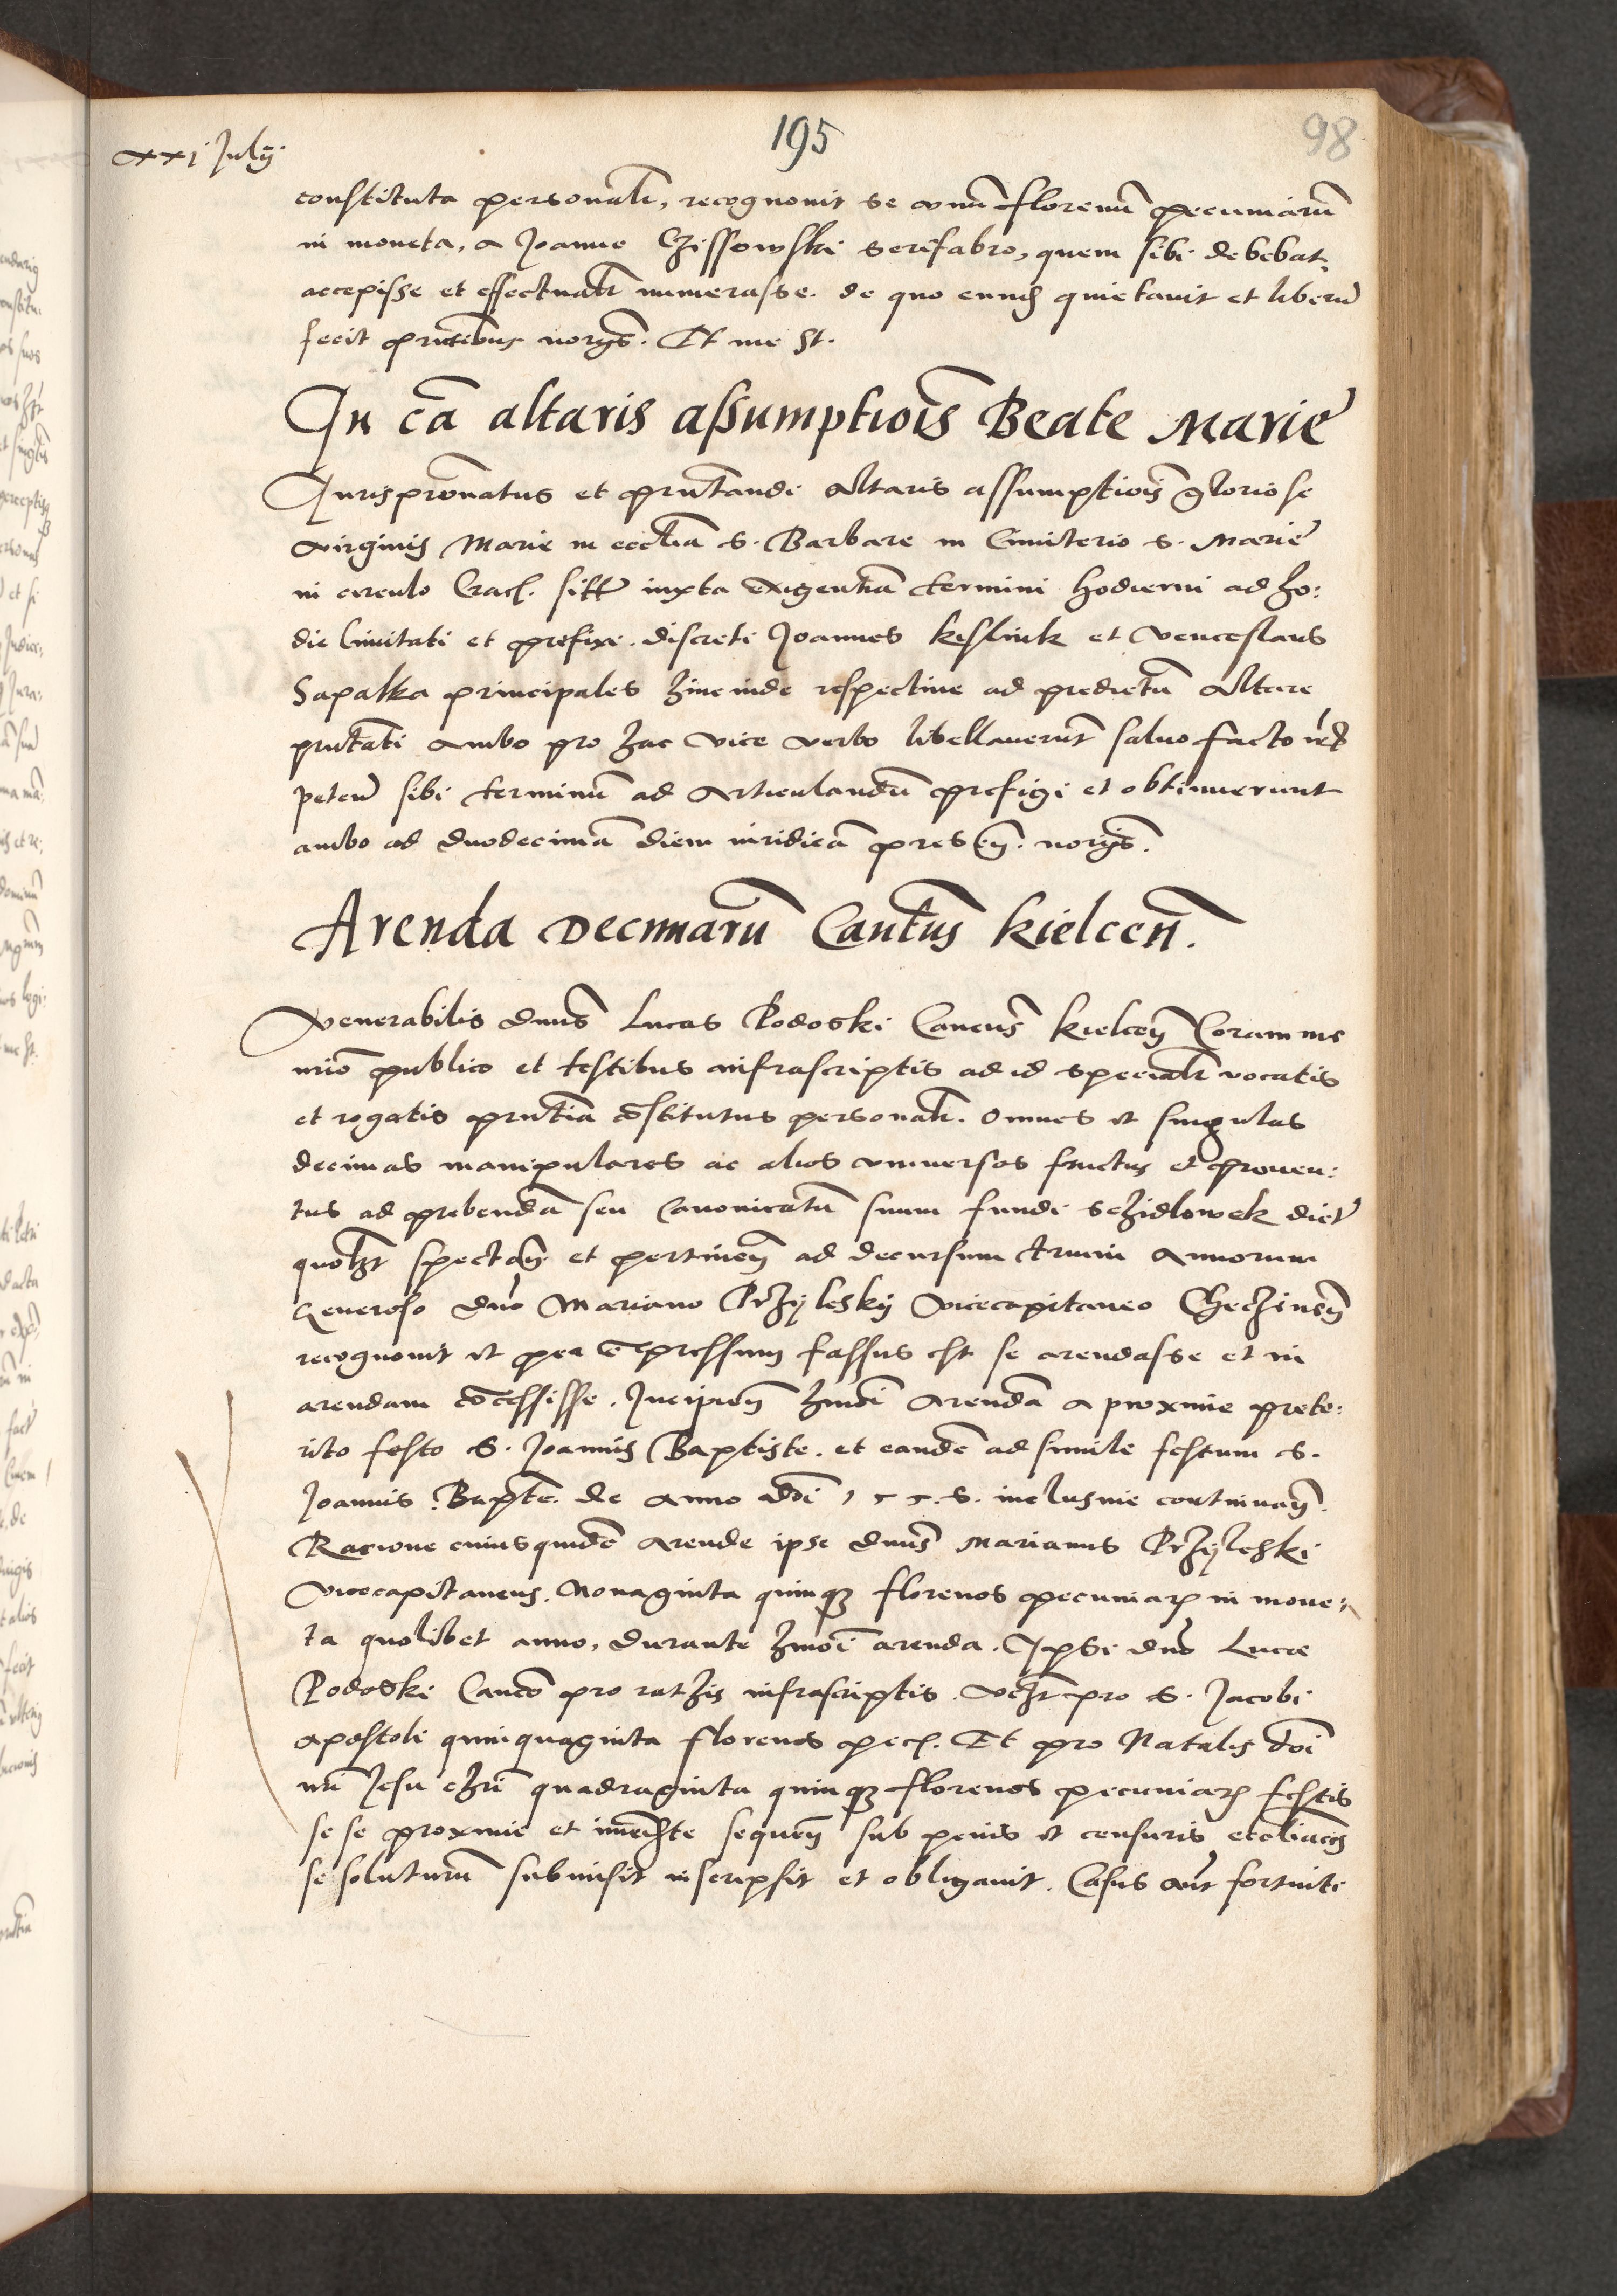 195
98
xxj July
constituta personalr, recognouit se vnū florenū pecuniarū
in moneta, a Joanne Czissowski serifabro, quem sibi debebat,
accepisse et effectualr numerasse. de quo eundē quietauit et liberū
fecit prntibus norijs. Et me st.
In cā altaris assumptiōis Beate Marie
Jurisprōnatus et prntandi Altaris assumptiōis gloriose
virginis Marie in ecclīa S. Barbare in Cimiterio S. Marie
in circulo Crac. sitt iuxta exigentiā termini hodierni ad ho:
die limitati et prefixi. discreti Joannes Keslink et Venceslaus
Sapalka principales hincinde respectiue ad predictū Altare
prntati ambo pro hac vice verbo libellauerūt saluo facto
peteñ sibi terminū ad Articulandū prefigi et obtinuerunt
ambo ad duodecimā diem iuridicā presen. norijs.
Arenda Decimarū Cantus Kielceñ.
Venerabilis dnūs Lucas Rodoski Cancus Kielceñ Coram me
nrīo publico et testibus infrascriptis ad id specialr vocatis
et rogatis prntīa cōstitutus personalr. omnes et singulas
decimas manipulares ac alios vniuersos fructus et prouen:
tus ad prebendā seu Canonicatū suum fundi Sczidlowek dict
quolzt spectañ et pertineñ ad decursum trium Annorum
Generoso dno Mariano Przyleskij vicecapitaneo Checzineñ
recognouit et per expressum fassus est se arendasse et in
arendam cōcessisse. Incipieñ hmōi Arendā a proxime prete:
rito festo S. Joannis Baptiste. et eandē ad simile festum S.
Joannis Bapte. de Anno dnī inclusiue continuañ.
Racione cuiusquidē Arende ipse dnūs Marianus Przyleski
vicecapitaneus. Nonaginta quinqz florenos pecuniarz in mone:
ta quolibet anno, durante hmōi arenda. Ipsi dno Luce
Rodoski Canco pro rathis infrascriptis. vczt pro S. Jacobi
apostoli quinquaginta florenos pec. Et pro Natalis dnī
nrī Jesu chrī quadraginta quinqz florenos pecuniarz festis
se se proxime et imēdte sequeñ sub penis et censuris
se soluturū submisit inscripsit et obligauit. Casus aut fortuiti